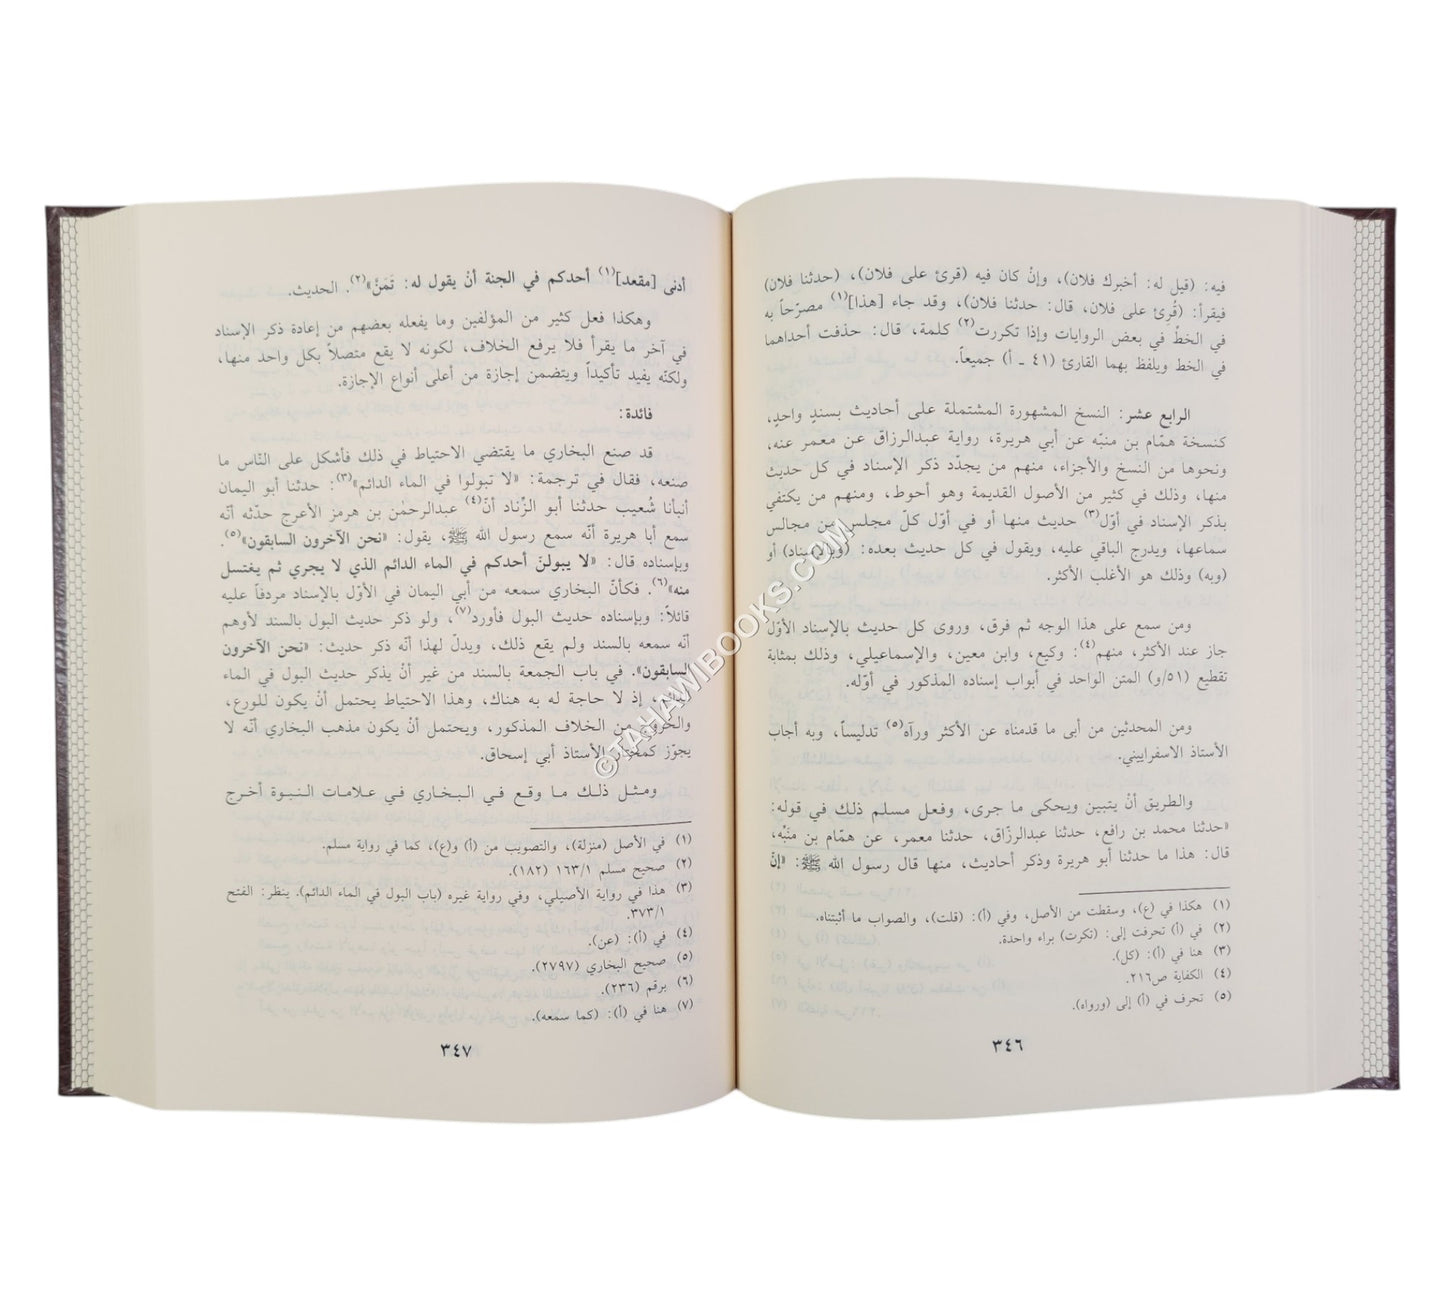 فيه: (قيل له: أخبرك فلان)، وإنْ كان فيه (قرئ على فلان)، (حدثنا فلان)
فيقرأ: (قُرِئ على فلان، قال: حدثنا فلان)، وقد جاء [هذا](١) مصرّحاً به
في الخطّ في بعض الروايات وإذا تكررت(٢) كلمة، قال: حذفت أحداهما
في الخط ويلفظ بهما القارئ (٤١ ـ أ) جميعاً.
الرابع عشر: النسخ المشهورة المشتملة على أحاديث بسندٍ واحدٍ،
كنسخة همّام بن منبّه عن أبي هريرة، رواية عبدالرزاق عن معمر عنه،
ونحوها من النسخ والأجزاء، منهم من يجدّد ذكر الإسناد في كل حديث
منها، وذلك في كثير من الأصول القديمة وهو أحوط، ومنهم من يكتفي
بذكر الإسناد في أوّل(٣) حديث منها أو في أوّل كلّ مجلس من مجالس
سماعها، ويدرج الباقي عليه، ويقول في كل حديث بعده: (وبالإسناد) أو
(وبه) وذلك هو الأغلب الأكثر.
ومن سمع على هذا الوجه ثم فرق، وروى كل حديث بالإسناد الأوّل
جاز عند الأكثر، منهم(٤): وكيع، وابن معين، والإسماعيلي، وذلك بمثابة
تقطيع (٥١/و) المتن الواحد في أبواب إسناده المذكور في أوّله.
ومن المحدثين من أبى ما قدمناه عن الأكثر ورآه(٥) تدليساً، وبه أجاب
الأستاذ الاسفراييني.
والطريق أنْ يتبين ويحكى ما جرى، وفعل مسلم ذلك في قوله:
«حدثنا محمد بن رافع، حدثنا عبدالرزّاق، حدثنا معمر، عن همّام بن منبّه،
قال: هذا ما حدثنا أبو هريرة وذكر أحاديث، منها قال رسول الله ﷺ: «إنّ
(١) هكذا في (ع)، وسقطت من الأصل، وفي (أ): (قلت)، والصواب ما أثبتناه.
(٢) في (أ) تحرفت إلى: (تكرت) براء واحدة.
(٣) هنا في (أ): (كل).
(٤) الكفاية ص٢١٦.
(٥) تحرف في (أ) إلى (ورواه).
٣٤٦
أدنى [مقعد](١) أحدكم في الجنة أنْ يقول له: تَمَنَّ»(٢). الحديث.
وهكذا فعل كثير من المؤلفين وما يفعله بعضهم من إعادة ذكر الإسناد
في آخر ما يقرأ فلا يرفع الخلاف، لكونه لا يقع متصلاً بكل واحد منها،
ولكنّه يفيد تأكيداً ويتضمن إجازة من أعلى أنواع الإجازة.
فائدة:
قد صنع البخاري ما يقتضي الاحتياط في ذلك فأشكل على النّاس ما
صنعه، فقال في ترجمة: «لا تبولوا في الماء الدائم»(٣): حدثنا أبو اليمان
أنبأنا شُعيب حدثنا أبو الزّناد أنّ(٤) عبدالرحمٰن بن هرمز الأعرج حدّثه أنّه
سمع أبا هريرة أنّه سمع رسول الله ﷺ، يقول: «نحن الآخرون السابقون»(٥).
وبإسناده قال: «لا يبولنّ أحدكم في الماء الدائم الذي لا يجري ثم يغتسل
منه»(٦). فكأنّ البخاري سمعه من أبي اليمان في الأوّل بالإسناد مردفاً عليه
قائلاً: وبإسناده حديث البول فأورد(٧)، ولو ذكر حديث البول بالسند لأوهم
أنّه سمعه بالسند ولم يقع ذلك، ويدلّ لهذا أنّه ذكر حديث: «نحن الآخرون
السابقون». في باب الجمعة بالسند من غير أنْ يذكر حديث البول في الماء
الدائم، إذ لا حاجة له به هناك، وهذا الاحتياط يحتمل أنْ يكون للورع،
والخروج من الخلاف المذكور، ويحتمل أنْ يكون مذهب البخاري أنّه لا
يجوّز كمختار الأستاذ أبي إسحاق.
ومثل ذلك ما وقع في البخاري في علامات النبوة أخرج
(١) في الأصل (منزلة)، والتصويب من (أ) و(ع)، كما في رواية مسلم.
(٢) صحيح مسلم ١٦٣/١ (١٨٢).
(٣) هذا في رواية الأصيلي، وفي رواية غيره (باب البول في الماء الدائم). ينظر: الفتح
٣٧٣/١.
(٤) في (أ): (عن).
(٥) صحيح البخاري (٢٧٩٧).
(٦) برقم (٢٣٦).
(٧) هنا في (أ): (كما سمعه).
٣٤٧
©TAHAWIBOOKS.COM